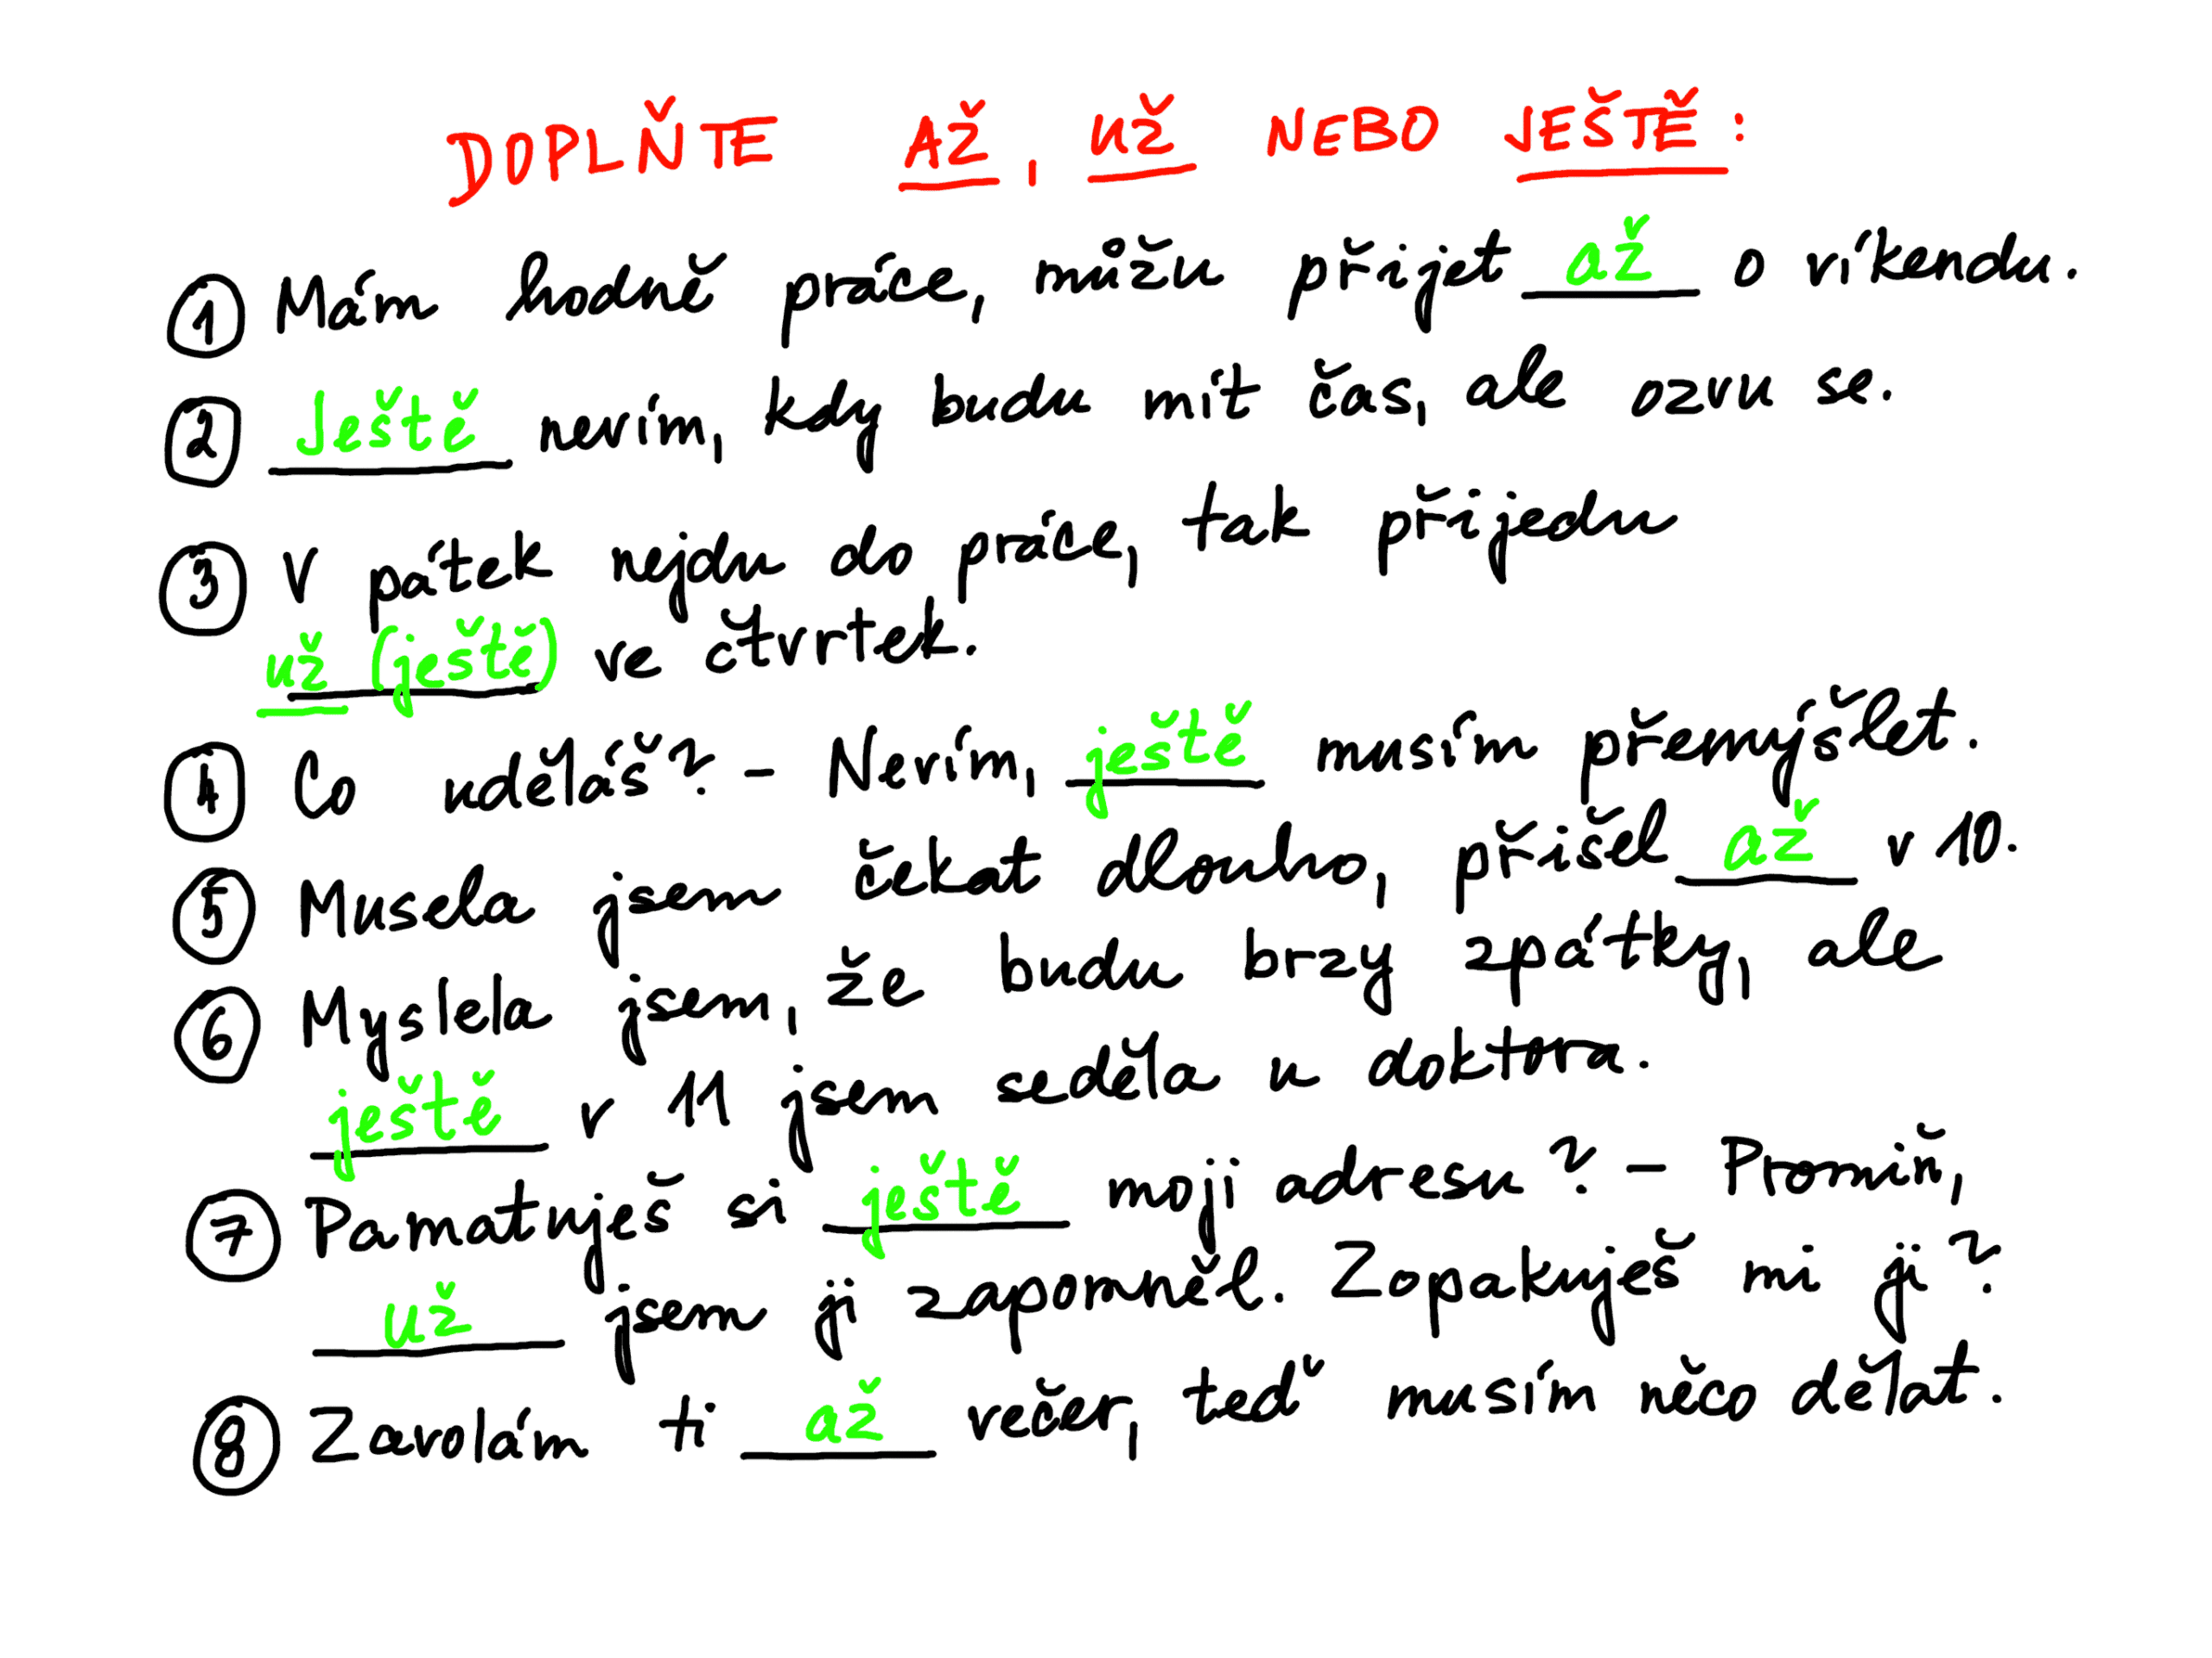 DOPLŇTE AŽ, UŽ NEBO JEŠTĚ:
1 Mám hodně práce, můžu přijet až o víkendu.
2 Ještě nevím, kdy budu mít čas, ale ozvu se.
3 V pátek nejdu do práce, tak přijedu
už (ještě) ve čtvrtek.
4 Co uděláš? - Nevím, ještě musím přemýšlet.
5 Musela jsem čekat dlouho, přišel až v 10.
6 Myslela jsem, že budu brzy zpátky, ale
ještě v 11 jsem seděla u doktora.
7 Pamatuješ si ještě moji adresu? - Promiň,
už jsem ji zapomněl. Zopakuješ mi ji?
8 Zavolám ti až večer, teď musím něco dělat.